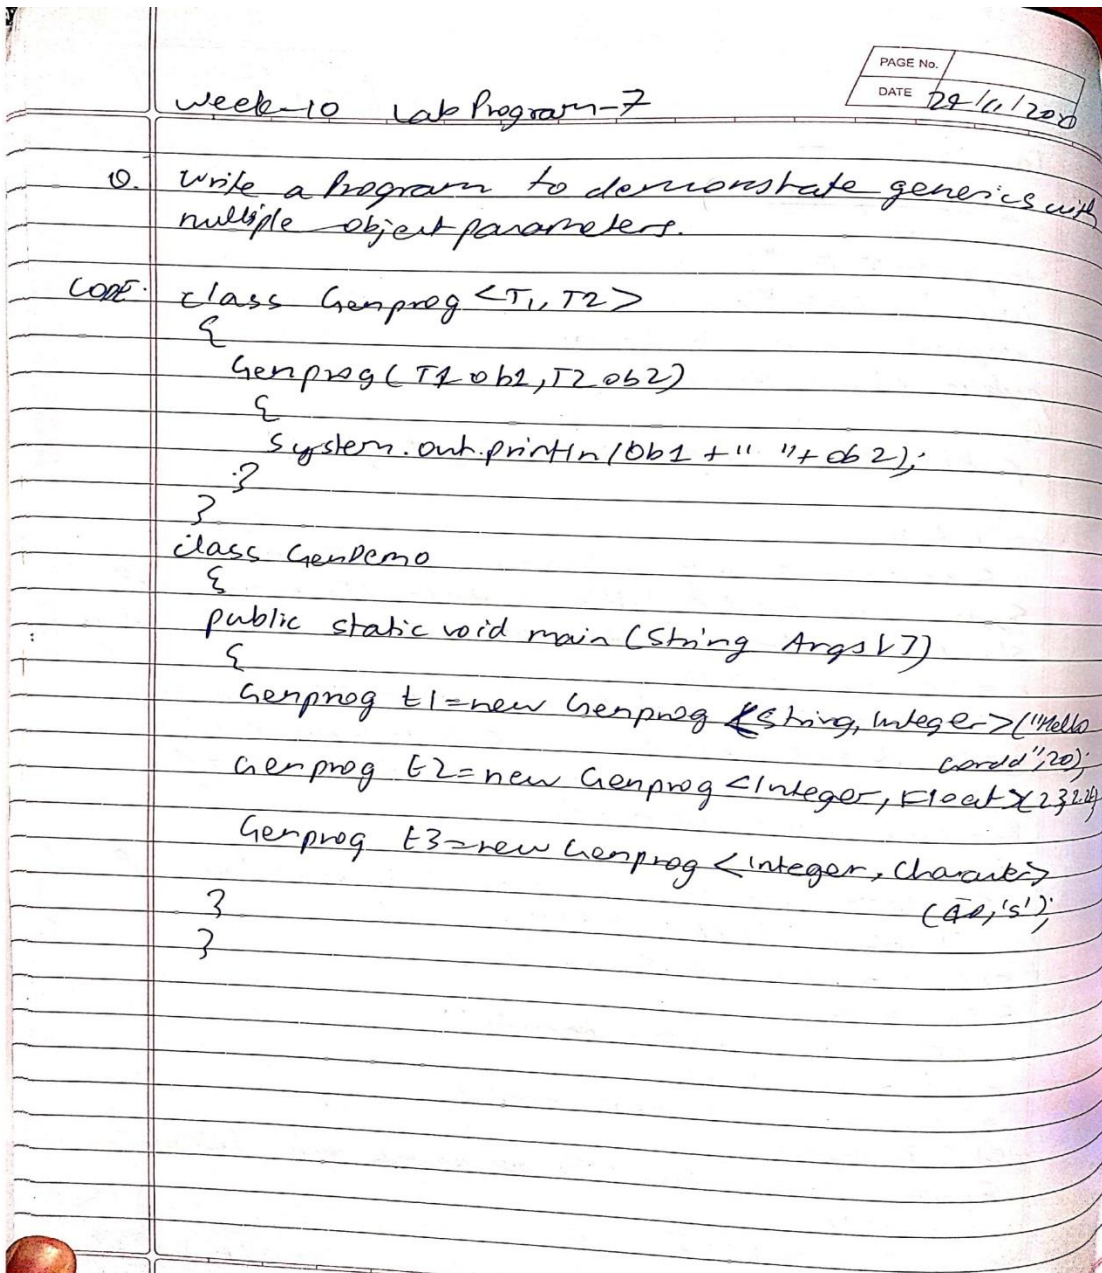 PAGE No.
DATE
Week-10 Lab Program-7
Q. Write a Program to demonstrate generics with
multiple object parameters.
CODE: class Genprog <T1, T2>
{
Genprog(T1 ob1, T2 ob2)
{
System.out.println(Ob1 +" "+ ob2);
}
}
class GenDemo
{
public static void main (String Args[])
{
Genprog t1=new Genprog <String, Integer>("Hello
20);
Genprog t2=new Genprog <Integer, Float>(23
Genprog t3=new Genprog <Integer, Character>
's');
}
}